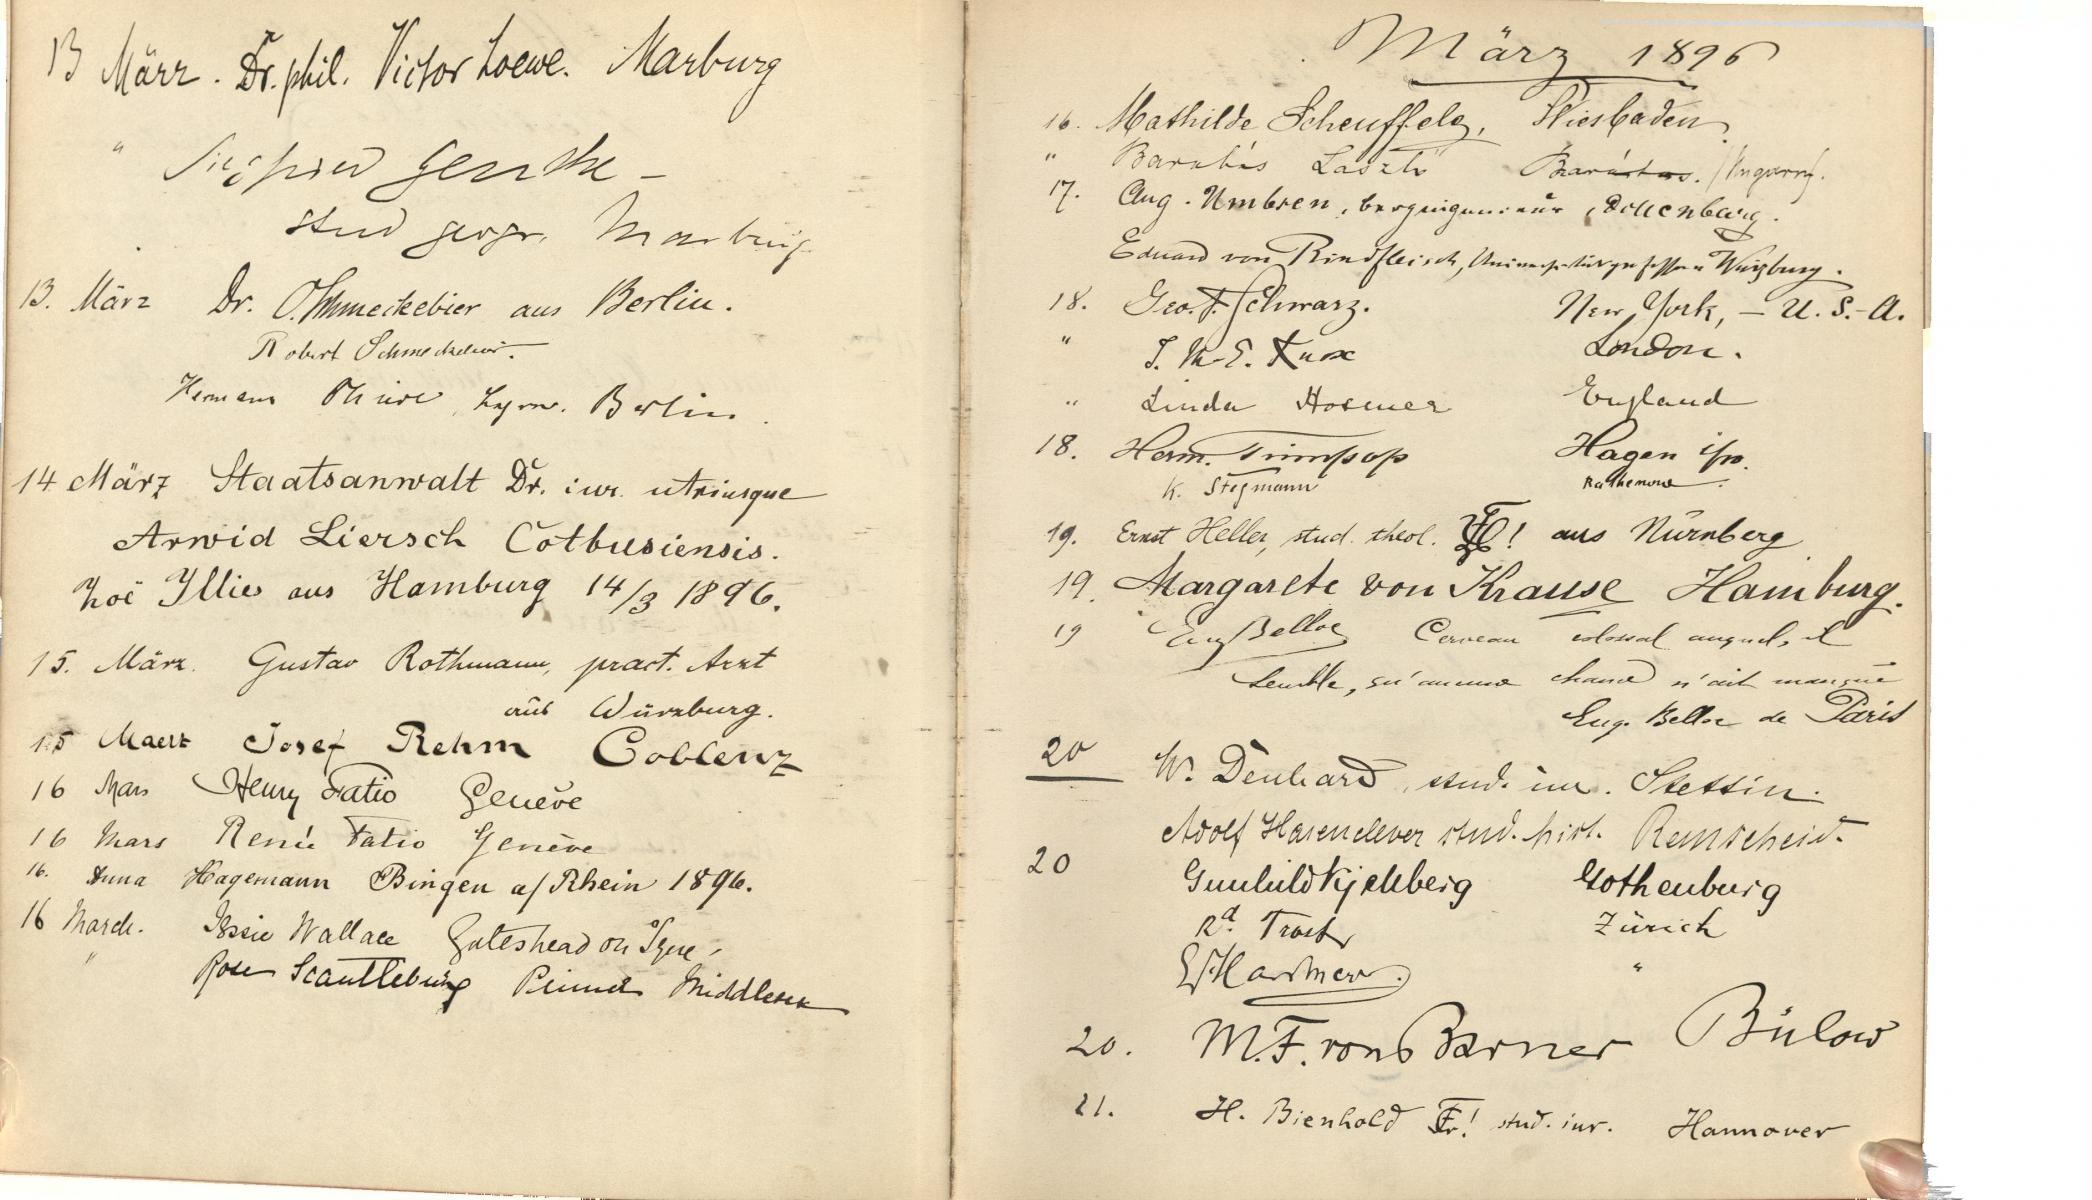 13 März. Dr. phil. Victor Loewe. Marburg
" Siegfried Genthe –
stud geogr. Marburg
13. März Dr. O. Schmeckebier aus Berlin.
Robert Schmeckebier.
Hermann Berlin.
14 März Staatsanwalt Dr. iur. utriusque
Arwid Liersch Cotbusiensis.
Zoë Illies aus Hamburg 14/3 1896.
15. März. Gustav Rothmann, pract. Arzt
aus Würzburg.
15 Maerz Josef Rehm Coblenz
16 Mars Henry Fatio Genève
16 Mars René Fatio Genève
16. Anna Hagemann Bingen a/Rhein 1896.
16 March. Jessie Wallace Gateshead on Tyne,
" Rose Scantlebury Pinner Middlesex
März 1896
16. Mathilde Scheuffele, Wiesbaden
" Barabás László (Ungarn).
17. Aug. Umbren, bergingenieur,
Eduard von Rindfleisch, Universitätsprofessor Würzburg.
18. Geo. F. Schwarz. New York, – U.S.-A.
" Knox London.
" Linda Hosmer England
18. Herm. Timpop Hagen i/w.
K. Stegmann Rathenow.
19. Ernst Heller, stud. theol. aus Nürnberg
19. Margarete von Krause Hamburg.
19 Eug Belloc Cerveau colossal auquel, il
semble, qu'aucune n'ait manqué
Eug. Belloc de Paris
20 W. Denhard, stud. iur. Stettin.
Adolf Hasenclever stud. hist. Remscheid.
20 Gunhild Kjellberg Gothenburg
Rd. Trost Zürich
"
20. M. F. von Barner Bülow
21. H. Bienhold Fr! stud. iur. Hannover